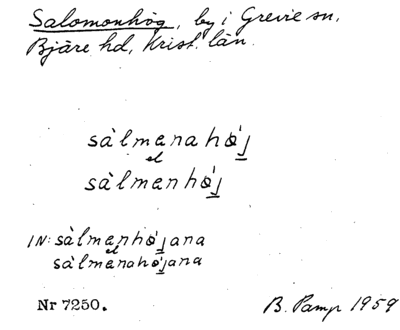 Salomonhög, by i Grevie sn,
Bjäre hd, Krist. län.
sàlmənahǿj
el
sàlmənhǿj
IN: sàlmənhǿjana
el
sàlmənahǿjana
Nr 7250. B. Pamp 1959